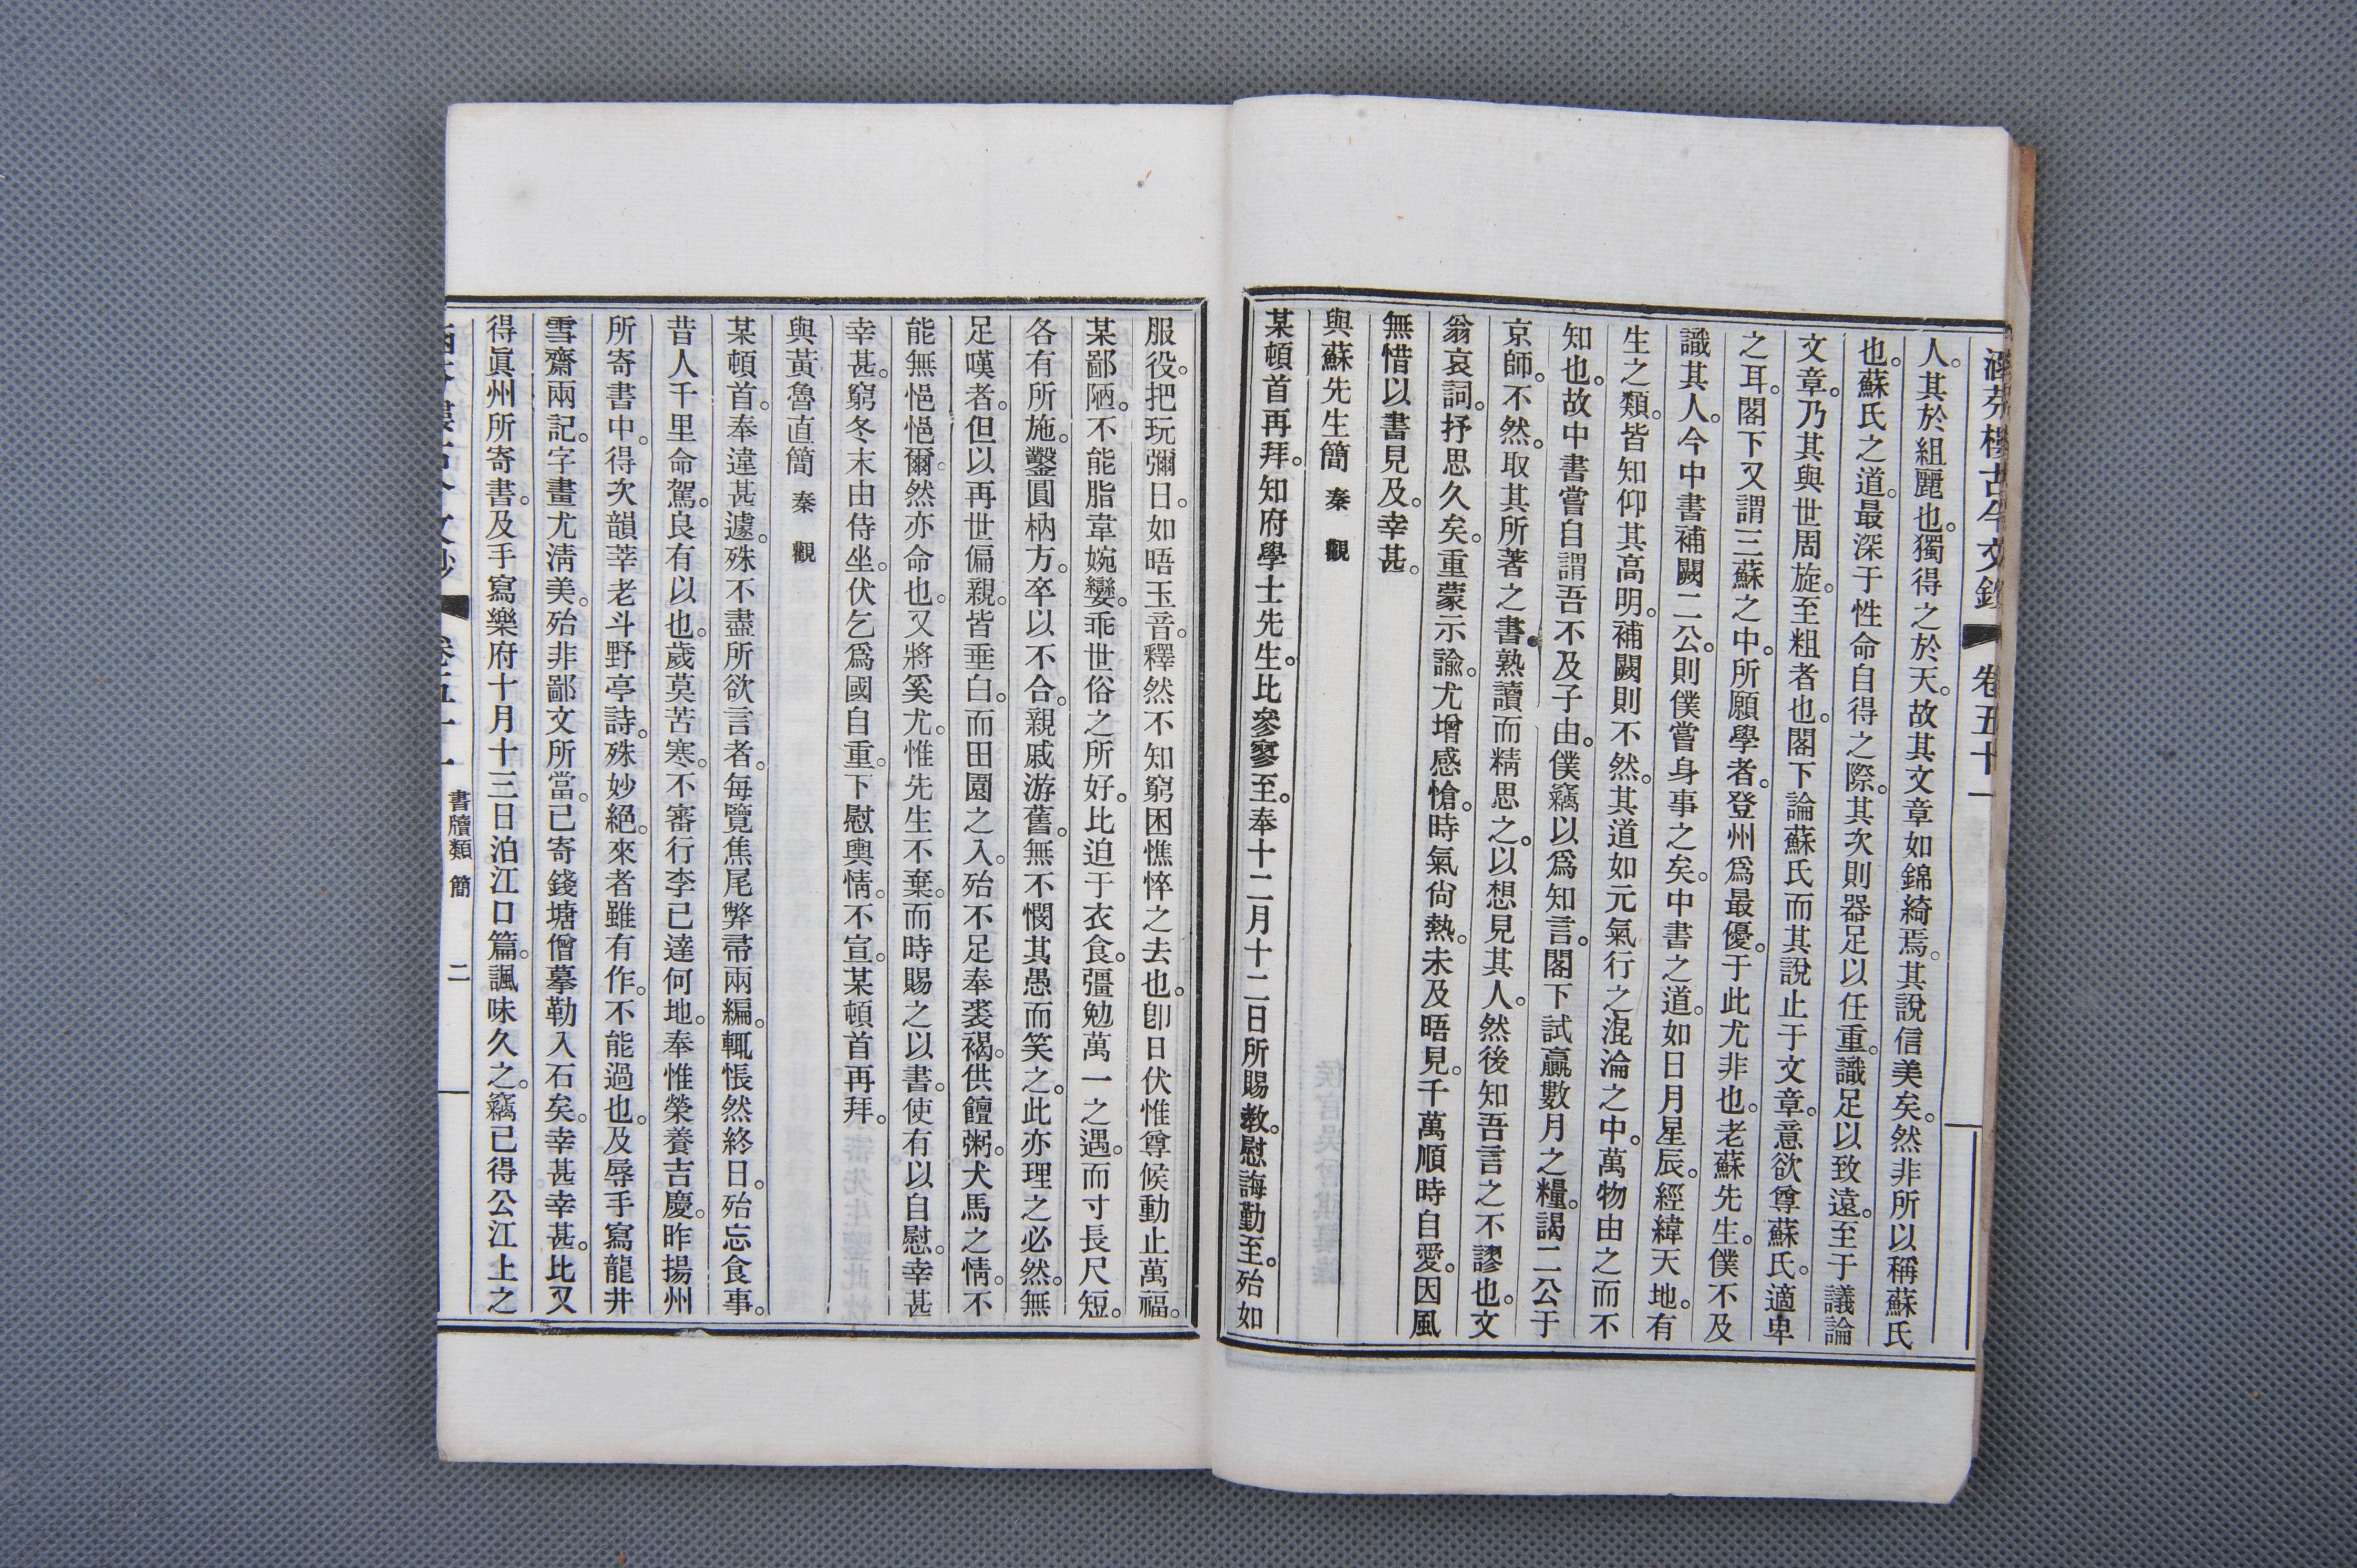 涵芬樓古今文鈔 卷五十一
人。其於組麗也。獨得之於天。故其文章如錦綺焉。其說信美矣。然非所以稱蘇氏
也。蘇氏之道。最深于性命自得之際。其次則器足以任重。識足以致遠。至于議論
文章。乃其與世周旋。至粗者也。閣下論蘇氏而其說止于文章。意欲尊蘇氏。適卑
之耳。閣下又謂三蘇之中。所願學者。登州爲最優。于此尤非也。老蘇先生。僕不及
識其人。今中書補闕二公。則僕嘗身事之矣。中書之道。如日月星辰。經緯天地。有
生之類。皆知仰其高明。補闕則不然。其道如元氣行之混淪之中。萬物由之而不
知也。故中書嘗自謂吾不及子由。僕竊以爲知言。閣下試贏數月之糧。謁二公于
京師。不然。取其所著之書。熟讀而精思之。以想見其人。然後知吾言之不謬也。文
翁哀詞。抒思久矣。重蒙示諭。尤增感愴。時氣尙熱。未及晤見。千萬順時自愛。因風
無惜以書見及。幸甚。
與蘇先生簡 秦觀
某頓首再拜。知府學士先生。比參寥至。奉十二月十二日所賜教。慰誨勤至。殆如
服役。把玩彌日。如晤玉音。釋然不知窮困憔悴之去也。卽日伏惟尊候動止萬福。
某鄙陋。不能脂韋婉孌。乖世俗之所好。比迫于衣食。彊勉萬一之遇。而寸長尺短。
各有所施。鑿圓枘方。卒以不合。親戚游舊。無不憫其愚而笑之。此亦理之必然。無
足嘆者。但以再世偏親。皆垂白。而田園之入。殆不足奉裘褐。供饘粥。犬馬之情。不
能無悒悒爾。然亦命也。又將奚尤。惟先生不棄。而時賜之以書。使有以自慰。幸甚
幸甚。窮冬末由侍坐。伏乞爲國自重。下慰輿情。不宣。某頓首再拜。
與黃魯直簡 秦觀
某頓首。奉違甚遽。殊不盡所欲言者。每覽焦尾弊帚兩編。輒悵然終日。殆忘食事。
昔人千里命駕。良有以也。歲莫苦寒。不審行李已達何地。奉惟榮養吉慶。昨揚州
所寄書中。得次韻莘老斗野亭詩。殊妙絕。來者雖有作。不能過也。及辱手寫龍井
雪齋兩記。字畫尤淸美。殆非鄙文所當。已寄錢塘僧摹勒入石矣。幸甚幸甚。比又
得眞州所寄書。及手寫樂府十月十三日泊江口篇。諷味久之。竊已得公江上之
卷五十一 書牘類 簡 二